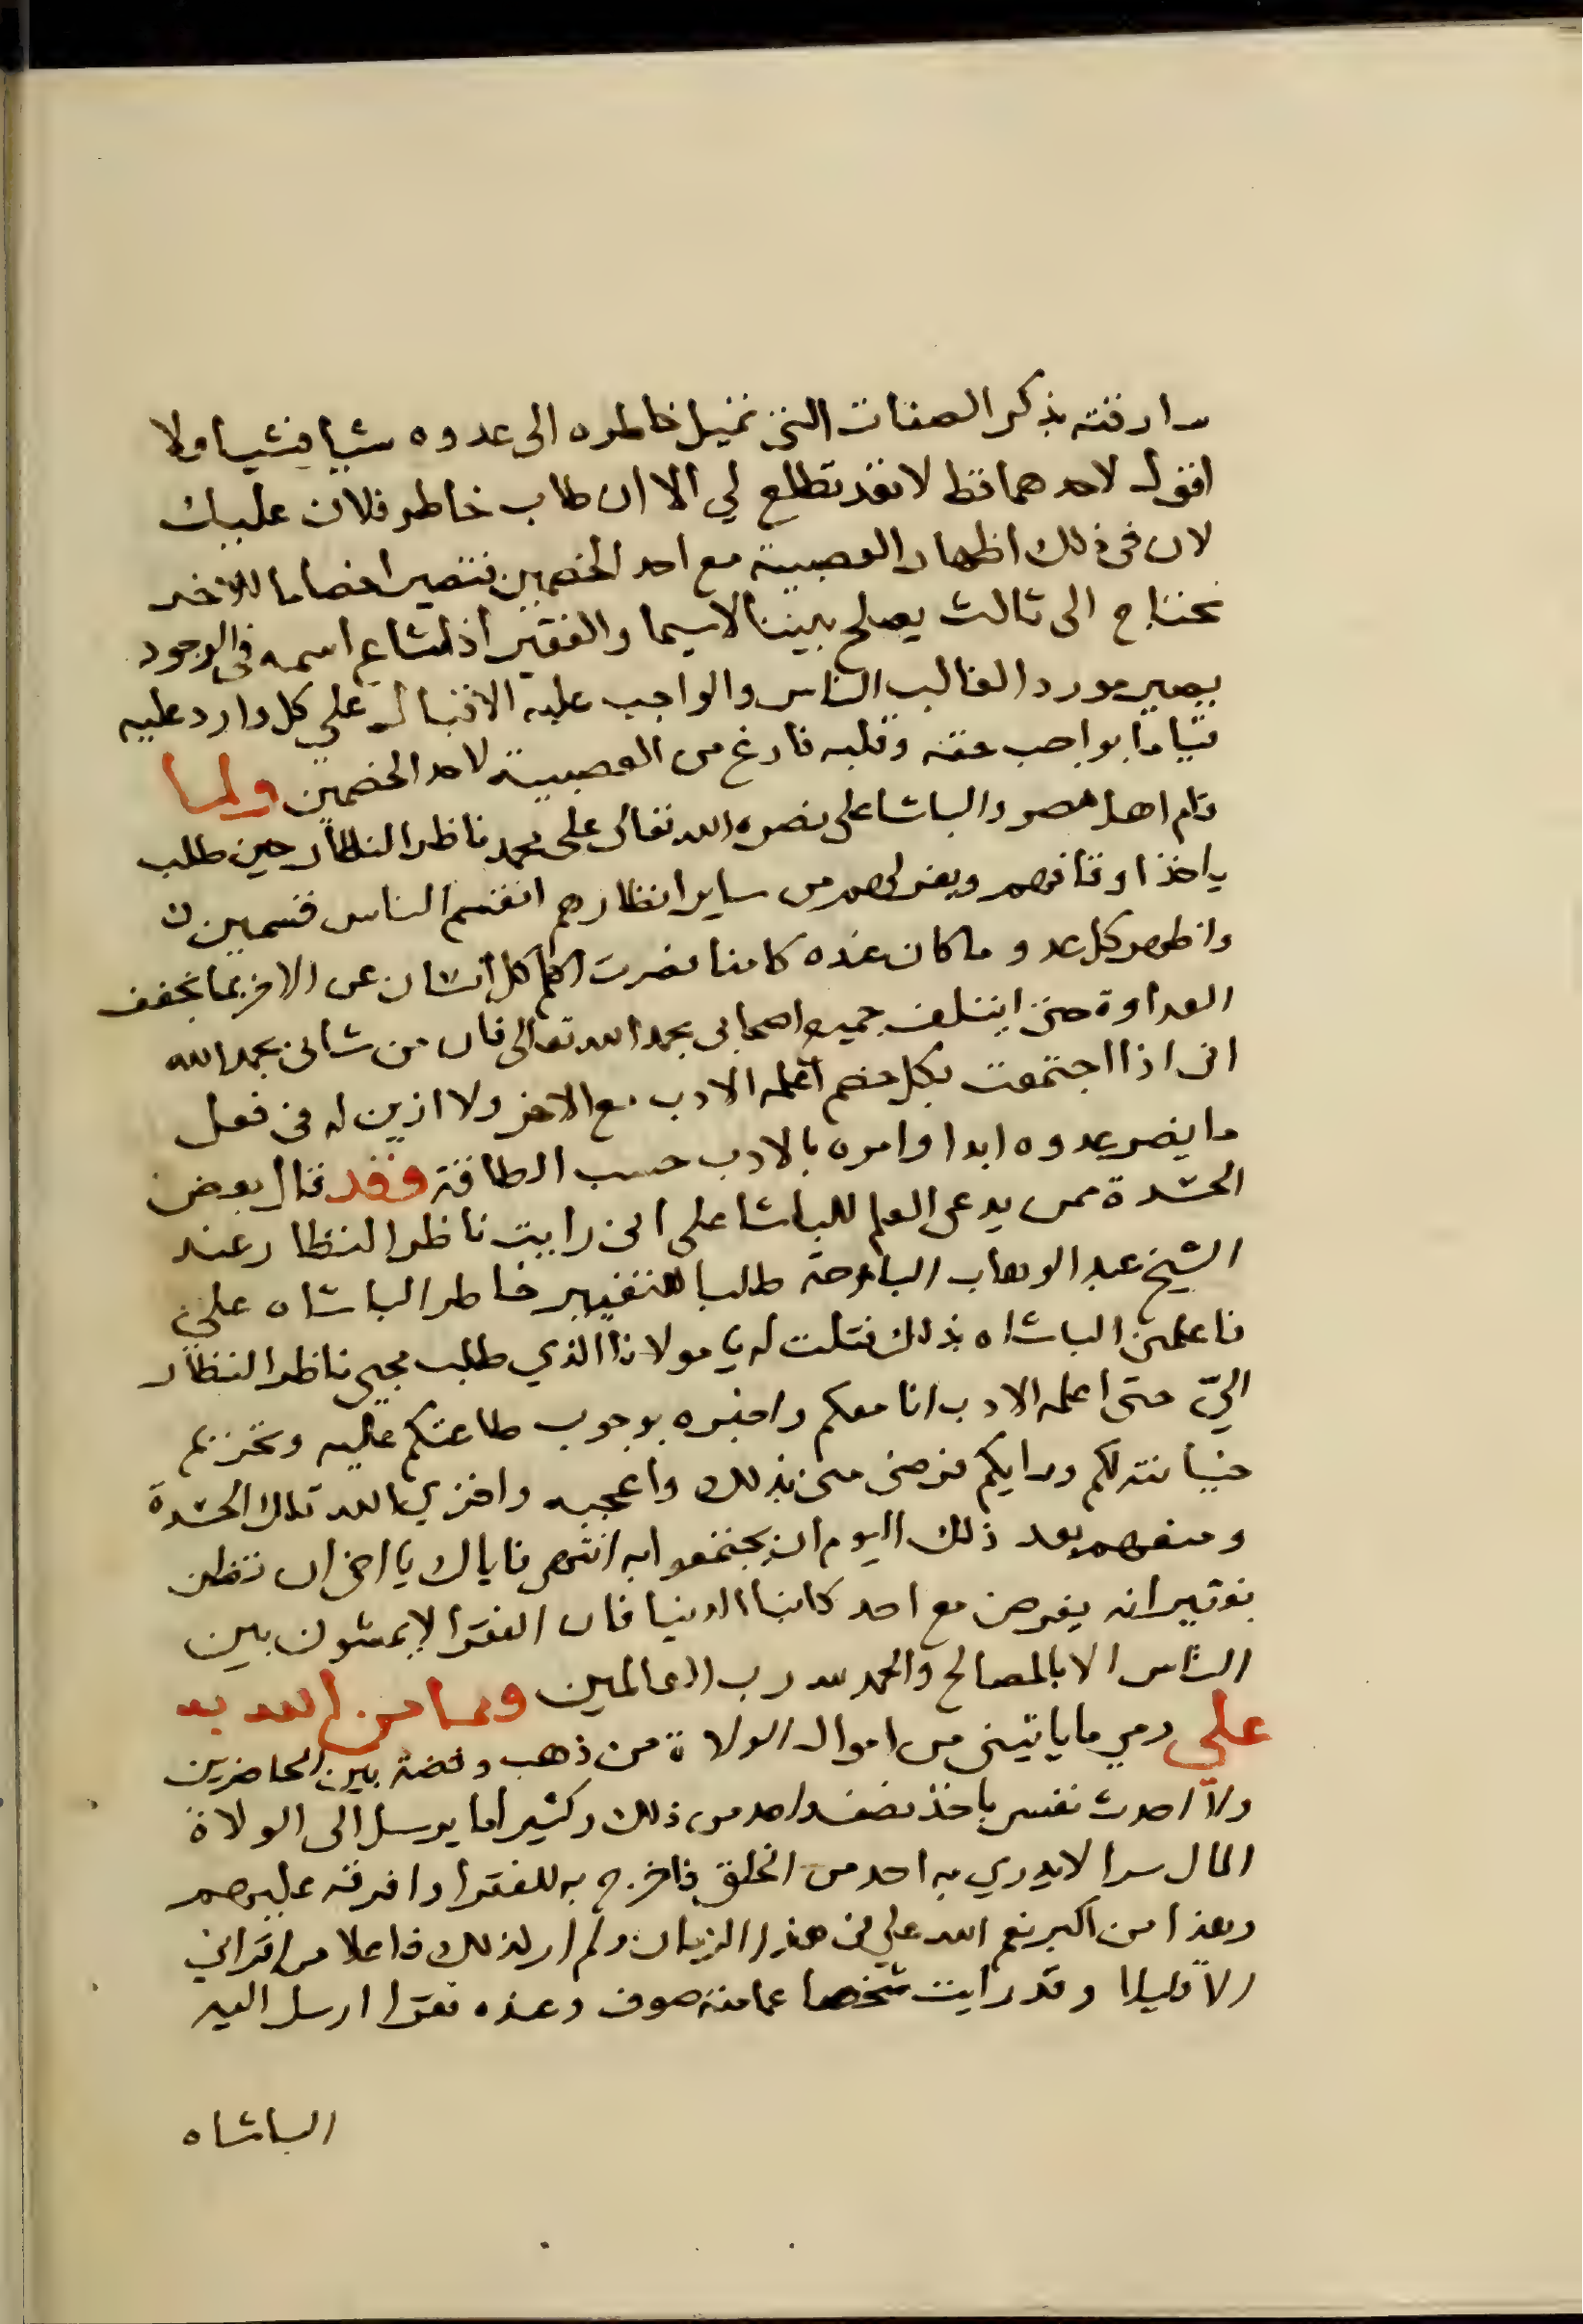 سارقته بذكر الصفات التى تميل خاطره الى عدوه شيا فشيا ولا
اقول لاحدهما قط لا تعد تطلع لي الا ان طاب خاطر فلان عليك
لان فى ذلك اظهار العصبية مع احد الخصمين فنصير اخصاما للاخر
نحتاج الى ثالث يصلح بيننا لاسيما والفقير اذا شاع اسمه فى الوجود
يصير موردا لغالب الناس والواجب عليه الاقبال على كل وارد عليه
قياما بواجب حقه وقلبه فارغ من العصبية لاحد الخصمين ولما
قام اهل مصر والباشا على نصره الله تعالى على محمد ناظر النظار حين طلب
ياخذ اوقافهم ويعزلهم من ساير انظارهم انقسم الناس قسمين
واظهر كل عدو ما كان عنده كامنا فصرت اكلم كل انسان عن الاخر بما يخفف
العداوة حتى ايتلف جميع اصحابى بحمد الله تعالى فان من شانى بحمد الله
انى اذا اجتمعت بكل خصم اعلمه الادب مع الاخر ولا ازين له فى فعل
ما يضر عدوه ابدا وامره بالادب حسب الطاقة وقد قال بعض
الحسدة ممن يدعى العلم للباشا على انى رايت ناظر النظار عند
الشيخ عبد الوهاب البارحة طلبا لتغيير خاطر الباشاه علي
فاعلمنى الباشاه بذلك فقلت له يا مولانا الذي طلب مجى ناظر النظار
اليّ حتى اعلمه الادب انا معكم واخبره بوجوب طاعتكم عليه وتحريم
خيانته لكم ورايكم فرضى منى بذلك واعجبه واخزي الله تلك الحسدة
ومنعهم بعد ذلك اليوم ان يجتمعوا به انتهى فاياك يا اخى ان تظن
بفقير انه يغرض مع احد من ابنا الدنيا فان الفقرا لا يمشون بين
الناس الا بالمصالح والحمد لله رب العالمين ومما من الله به
علي رمي ما ياتينى من اموال الولاة من ذهب وفضة بين الحاضرين
ولا احدث نفسى باخذ نصف واحد من ذلك وكثيرا ما يرسل الى الولاة
المال سرا لا يدري به احد من الخلق فاخرج به للفقرا وافرقه عليهم
وهذا من اكبر نعم الله علي فى هذا الزمان ولم ار لذلك فاعلا من اقرانى
الا قليلا وقد رايت شخصا عمامته صوف وعنده فقرا ارسل اليه
الباشاه